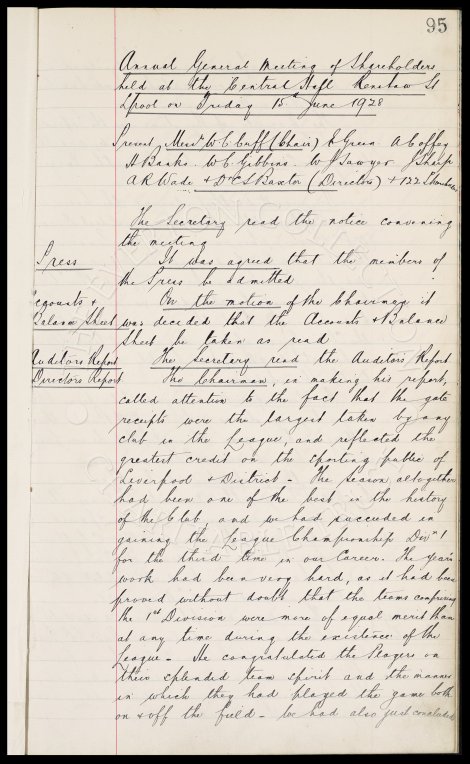 95
Annual General Meeting of Shareholders
held at the Central Hall Renshaw St
L'pool on Friday 15th June 1928
Present Messrs W C Cuff (Chair) E Green A Coffey
H Banks W C Gibbins W J Sawyer J Sharp
A R Wade & Dr C S Baxter (Directors) + 122 Shareholders
The Secretary read the notice convening
the meeting
Press
It was agreed that the members of
the Press be admitted
Accounts &
Balance Sheet
On the motion of the Chairman it
was decided that the Accounts & Balance
Sheet be taken as read
Auditors Report
The Secretary read the Auditors Report
Directors Report
The Chairman, in making his report,
called attention to the fact that the gate
receipts were the largest taken by any
club in the League, and reflected the
greatest credit on the sporting public of
Liverpool & District - The season altogether
had been one of the best in the history
of the Club, and we had succeeded in
gaining the League Championship Divn 1
for the third time in our Career. The year's
work had been very hard, as it had been
proved without doubt that the teams comprising
the 1st Division were more of equal merit than
at any time during the existence of the
League - He congratulated the Players on
their splended team spirit and the manner
in which they had played the game both
on & off the field - We had also just concluded